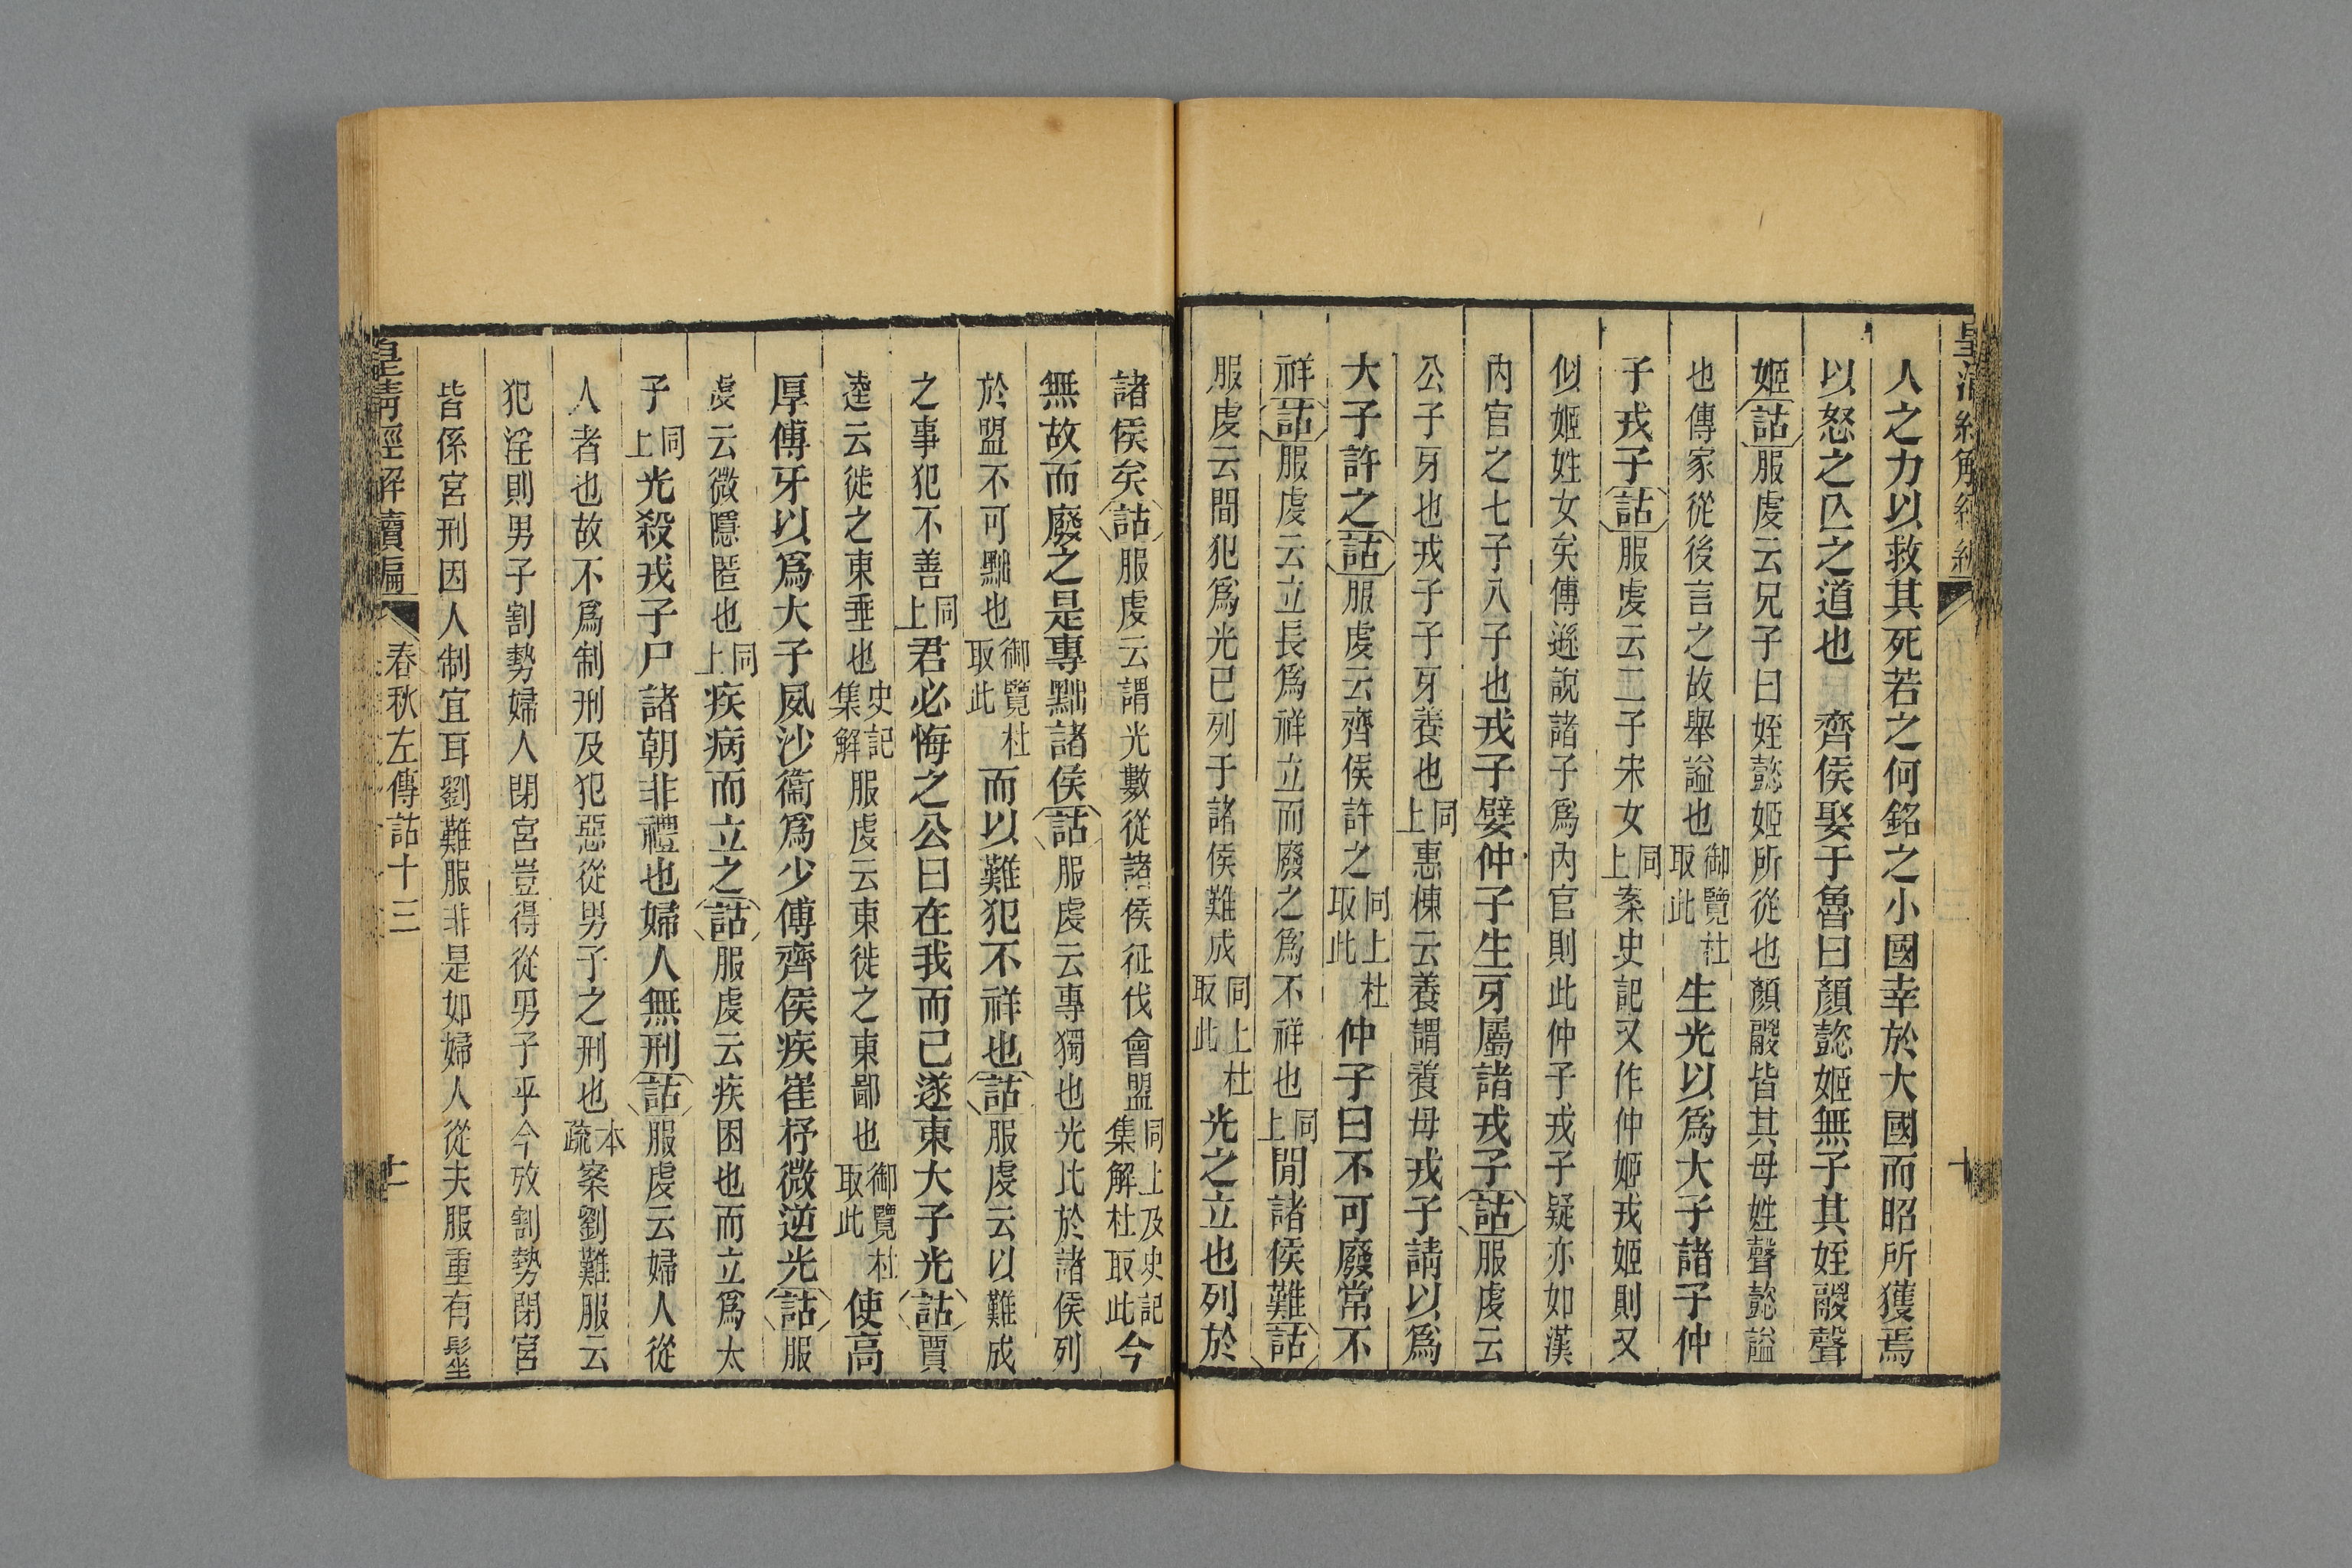 人之力以救其死若之何銘之小國幸於大國而昭所獲焉
以怒之亾之道也　齊侯娶于魯曰顏懿姬無子其姪鬷聲
姬詁服虔云兄子曰姪懿姬所從也顏鬷皆其母姓聲懿諡
也傳家從後言之故舉諡也御覽杜取此生光以爲大子諸子仲
子戎子詁服虔云二子宋女同上案史記又作仲姬戎姬則又
似姬姓女矣傳遜說諸子爲內官則此仲子戎子疑亦如漢
內官之七子八子也戎子嬖仲子生牙屬諸戎子詁服虔云
公子牙也戎子子牙養也同上惠棟云養謂養母戎子請以爲
大子許之詁服虔云齊侯許之同上杜取此仲子曰不可廢常不
祥詁服虔云立長爲祥立而廢之爲不祥也同上閒諸侯難詁
服虔云間犯爲光已列于諸侯難成同上杜取此光之立也列於
諸侯矣詁服虔云謂光數從諸侯征伐會盟同上及史記集解杜取此今
無故而廢之是專黜諸侯詁服虔云專獨也光比於諸侯列
於盟不可黜也御覽杜取此而以難犯不祥也詁服虔云以難成
之事犯不善同上君必悔之公曰在我而已遂東大子光詁賈
逵云徙之東垂也史記集解服虔云東徙之東鄙也御覽杜取此使高
厚傅牙以爲大子夙沙衞爲少傅齊侯疾崔杼微逆光詁服
虔云微隱匿也同上疾病而立之詁服虔云疾困也而立爲太
子同上光殺戎子尸諸朝非禮也婦人無刑詁服虔云婦人從
人者也故不爲制刑及犯惡從男子之刑也本疏案劉難服云
犯淫則男子割勢婦人閉宮豈得從男子乎今攷割勢閉宮
皆係宮刑因人制宜耳劉難服非是如婦人從夫服重有髽
皇清經解續編
春秋左傳詁十三